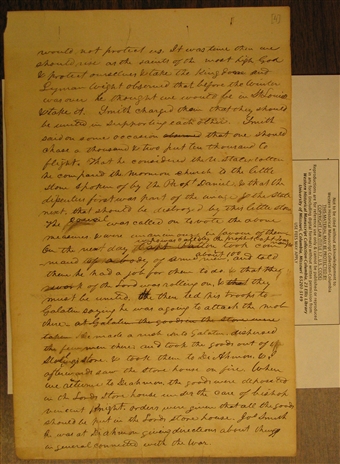 [4]
would not protect us. It was time then we
should rise as the saints of the most high God
& protect ourselves & take the Kingdom and
Lyman Wight observed that before the winter
was over he thought we would be in St Louis
& take it. Smith charged them that they should
be united in supporting each other. Smith
said on some occasion that one should
chase a thousand & two put ten thousand to
flight. That he considered the U. States rotten
he compared the Mormon church to the little
stone spoken of by the Prophet Daniel, & that the
dissenters first was part of the image & the State
next, that should be destroyed by this little stone
The council was called on to vote the above
measures & were unanimous in favour of them
On the next day took com-
mand of a body of armed men & told
them he had a job for them to do & that they
work of the Lord was rolling on & they
must be united. then led his troops to
Gallatin saying he was going to attack the mob
there
he made a rush into Gallatin dispersed
the few men there, and took the goods out of
store & took them to Di Ahmon. & I
afterwards saw the store house on fire. When
we returned to Diahmon the goods were deposited
in the Lords Store house under the care of bishop
Vincent Knight. orders were given that all the goods
should be put in the Lords Store house. Joe Smith
he was at Diahmon giving directions about things
in general connected with the war.